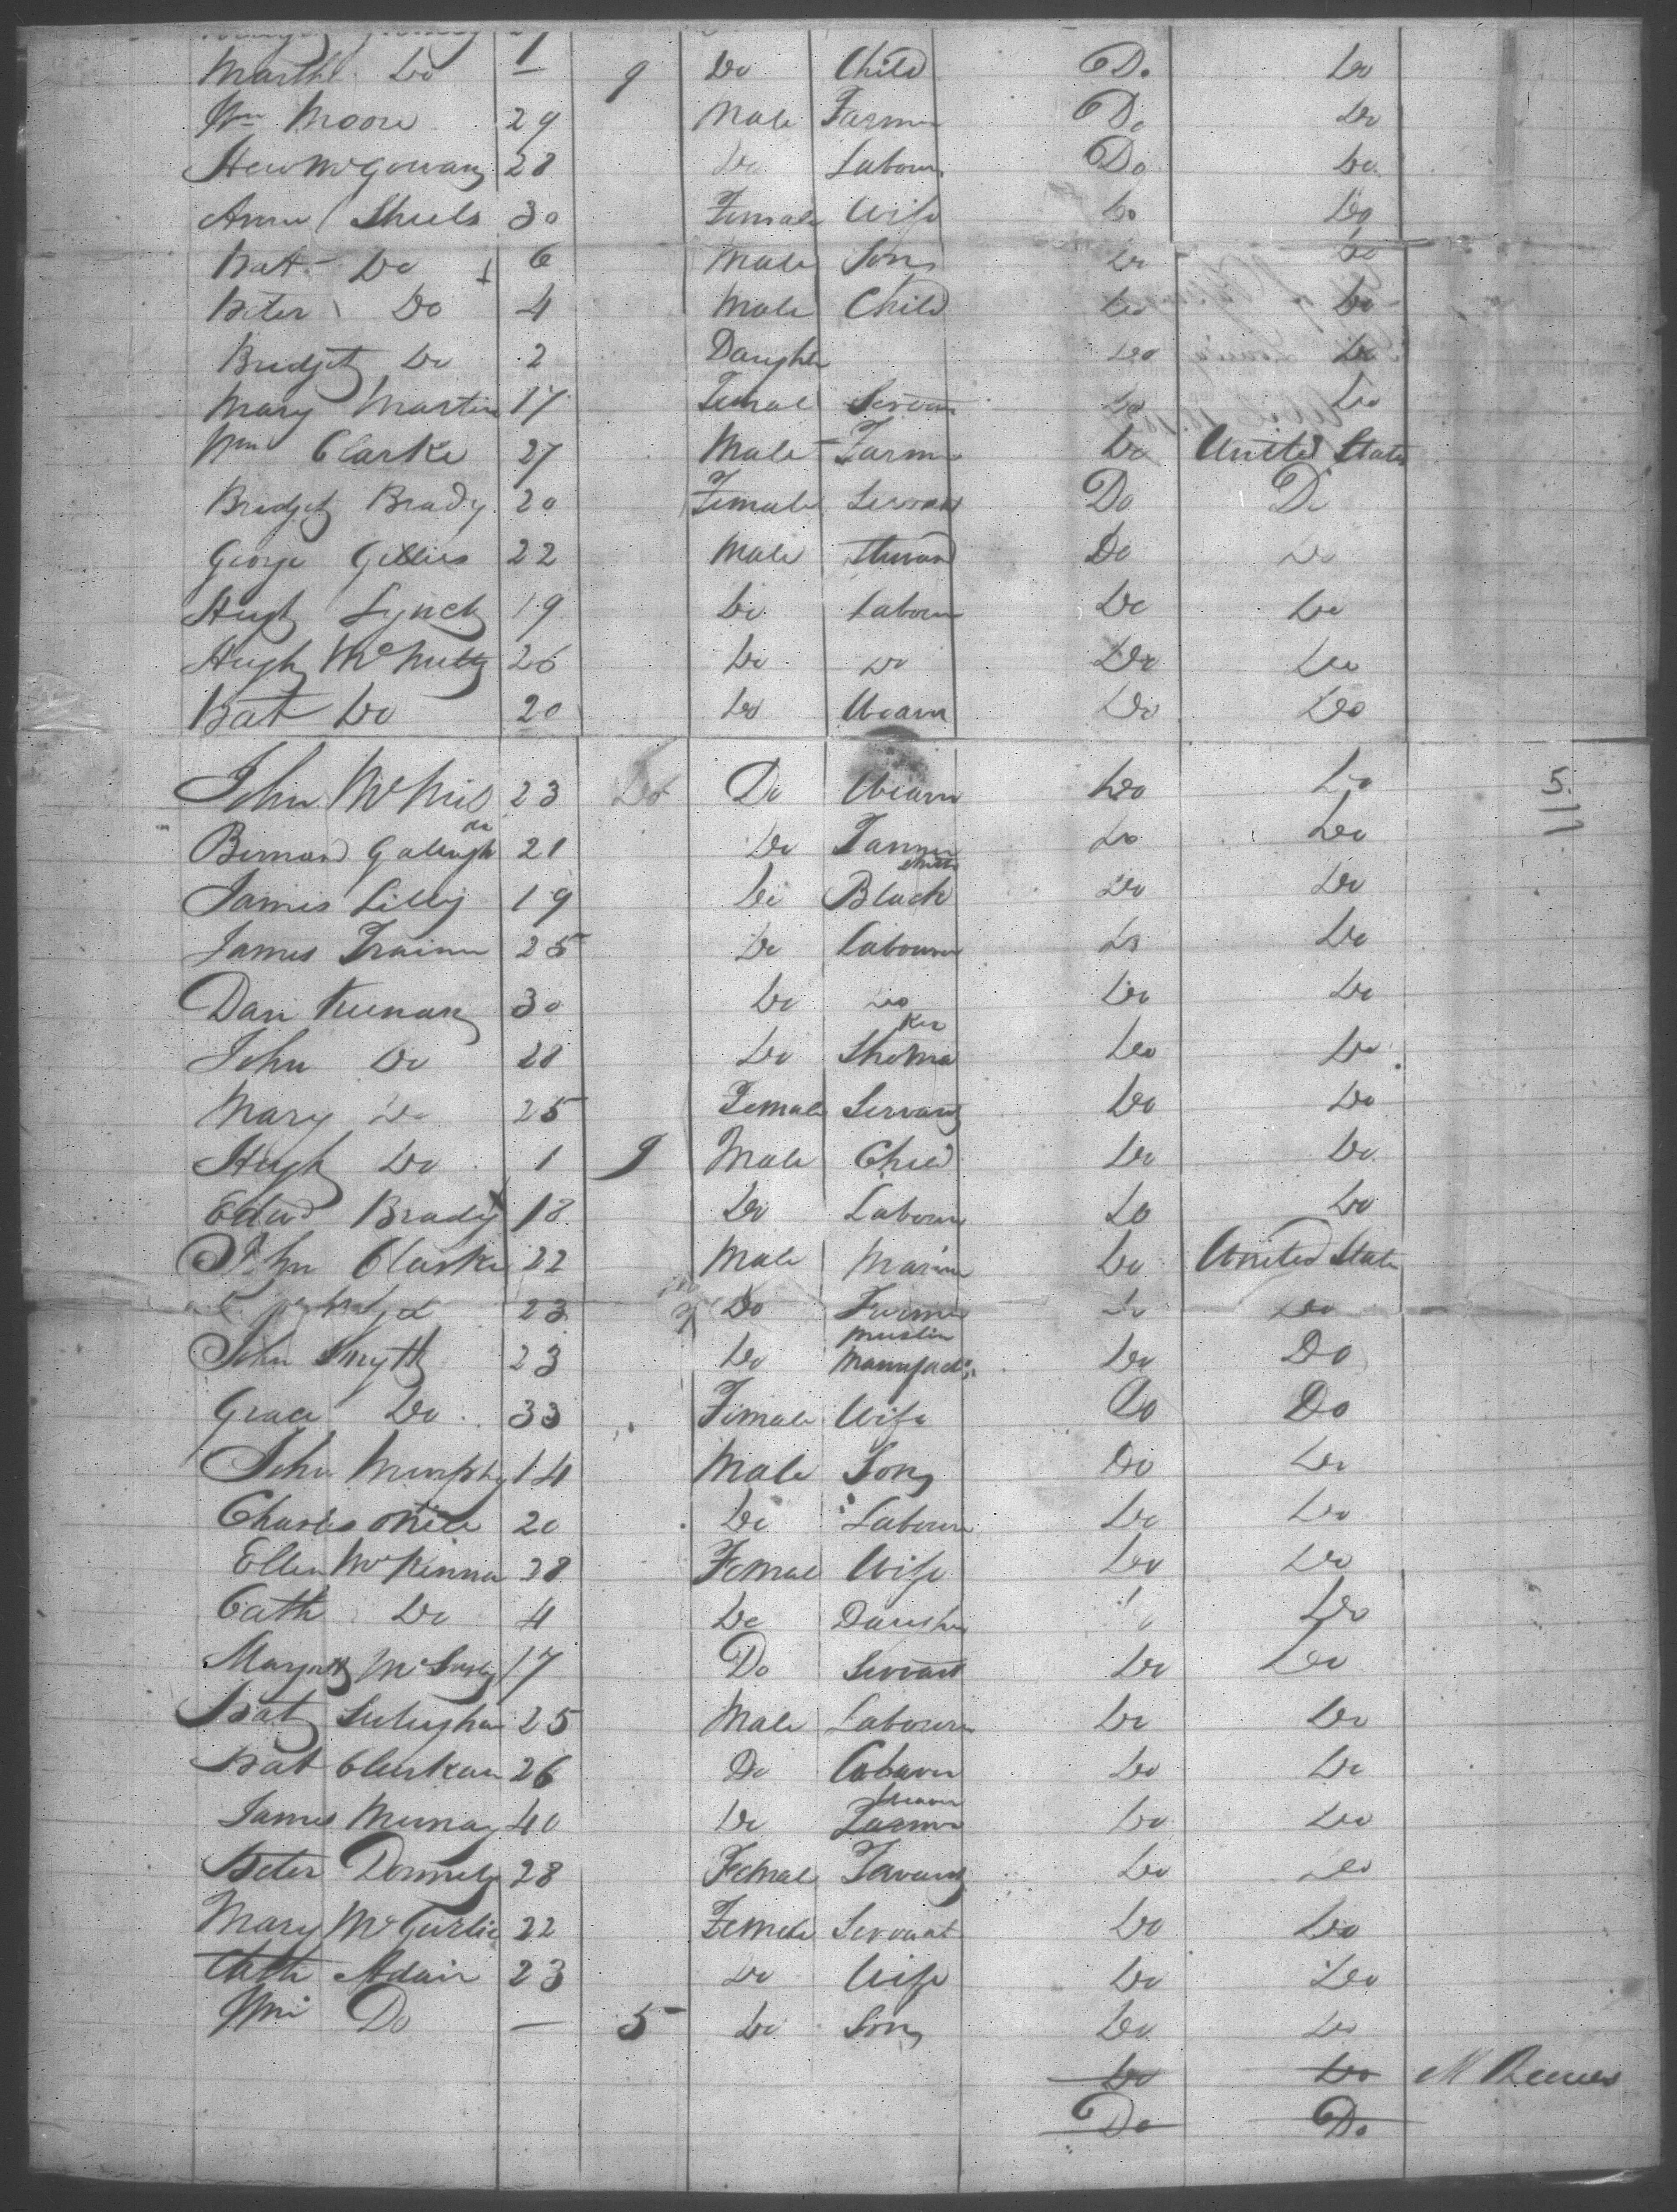 Martha Do 1 9 Do Child Do. Do
Wm Moore 29 Male Farmer Do Do
Hew McGowan 28 Do Labour Do Do
Anne Shiels 30 Female Wife Do Do
Pat Do 6 Male Son Do Do
Peter Do 4 Male Child Do Do
Bridget Do 2 Daughter Do Do
Mary Martin 17 Femal Servan Do Do
Wm Clarke 27 Male Farm Do United States
Bridget Brady 20 Female Servan Do Do
George Gillies 22 Male Do Do
Hugh Lynch 19 Do Labour Do Do
Hugh McNulty 26 Do Do Do Do
Pat Do 20 Do Weaver Do Do
John 23 Do Do Weaver Do Do 5
Bernard Galaugher 21 Do Tanner Do Do
James Lilley 19 Do Black smith Do Do
James Trainer 25 Do Labourer Do Do
Dan Keenan 30 Do Do Do Do
John Do 28 Do Shoma ker Do Do
Mary Do 25 Female Servant Do Do
Hugh Do 1 9 Male Child Do Do
Edwd Brady 18 Do Labour Do Do
John Clarke 22 Male Do United State
23 Do Farmer Do Do
John Smyth 23 Do Muslin Manufact Do Do
Grace Do 33 Female Wife Do Do
John Murphy 14 Male Son Do Do
Charles ONeil 20 Do Labourer Do Do
Ellen McKenna 28 Femal Wife Do Do
Cath Do 4 Do Daughter Do
Margrett 17 Do Servant Do Do
Pat 25 Male Labourer Do Do
Pat Cluskan 26 Do Do Do
James Murray 40 Do Weaver Farmer Do Do
Peter Donnely 28 Femal Do Do
Mary 22 Female Servant Do Do
Cath Adair 23 Do Wife Do Do
Wm Do — 5 Do Son Do Do
Do Do M Reeves
Do Do